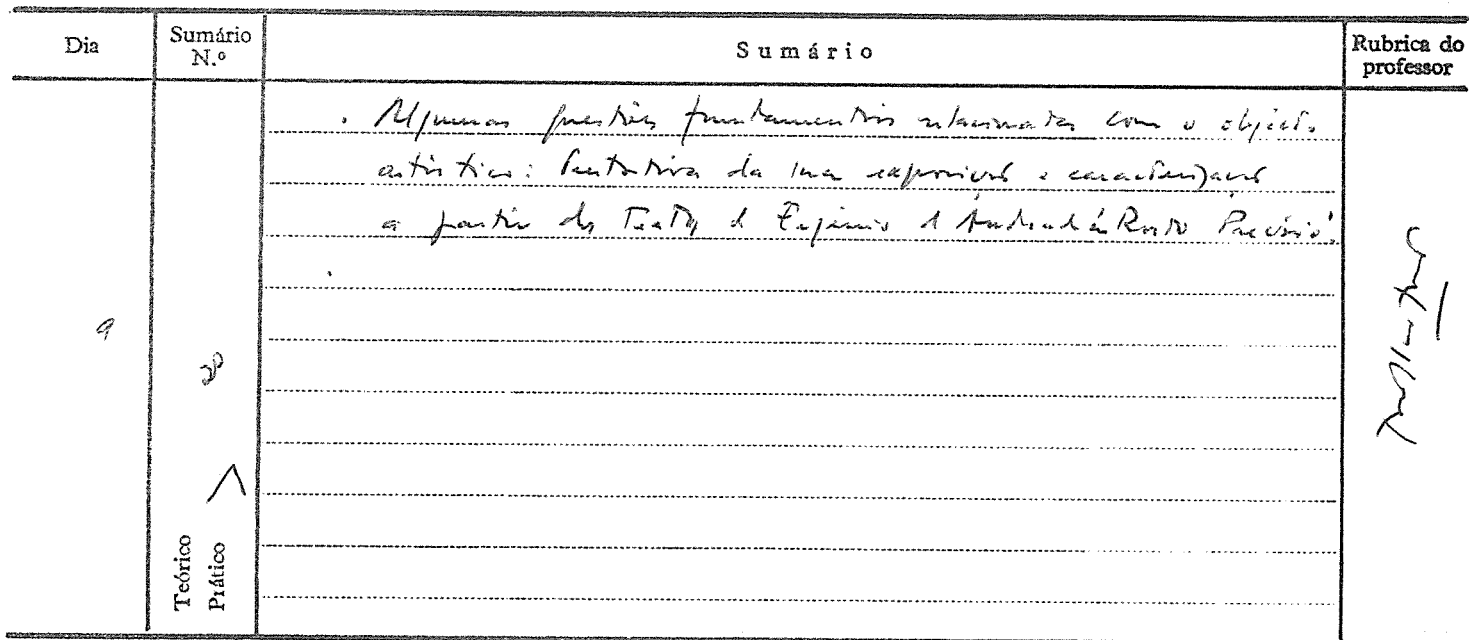 Dia
Sumário N.º
Sumário
Rubrica do professor
. Algumas questões fundamentais relacionadas com o objecto
artístico: Tentativa da sua exposição e caracterização
a partir do Texto de Eugénio d'Andrade "Rosto Precário".
9
Teórico
Prático